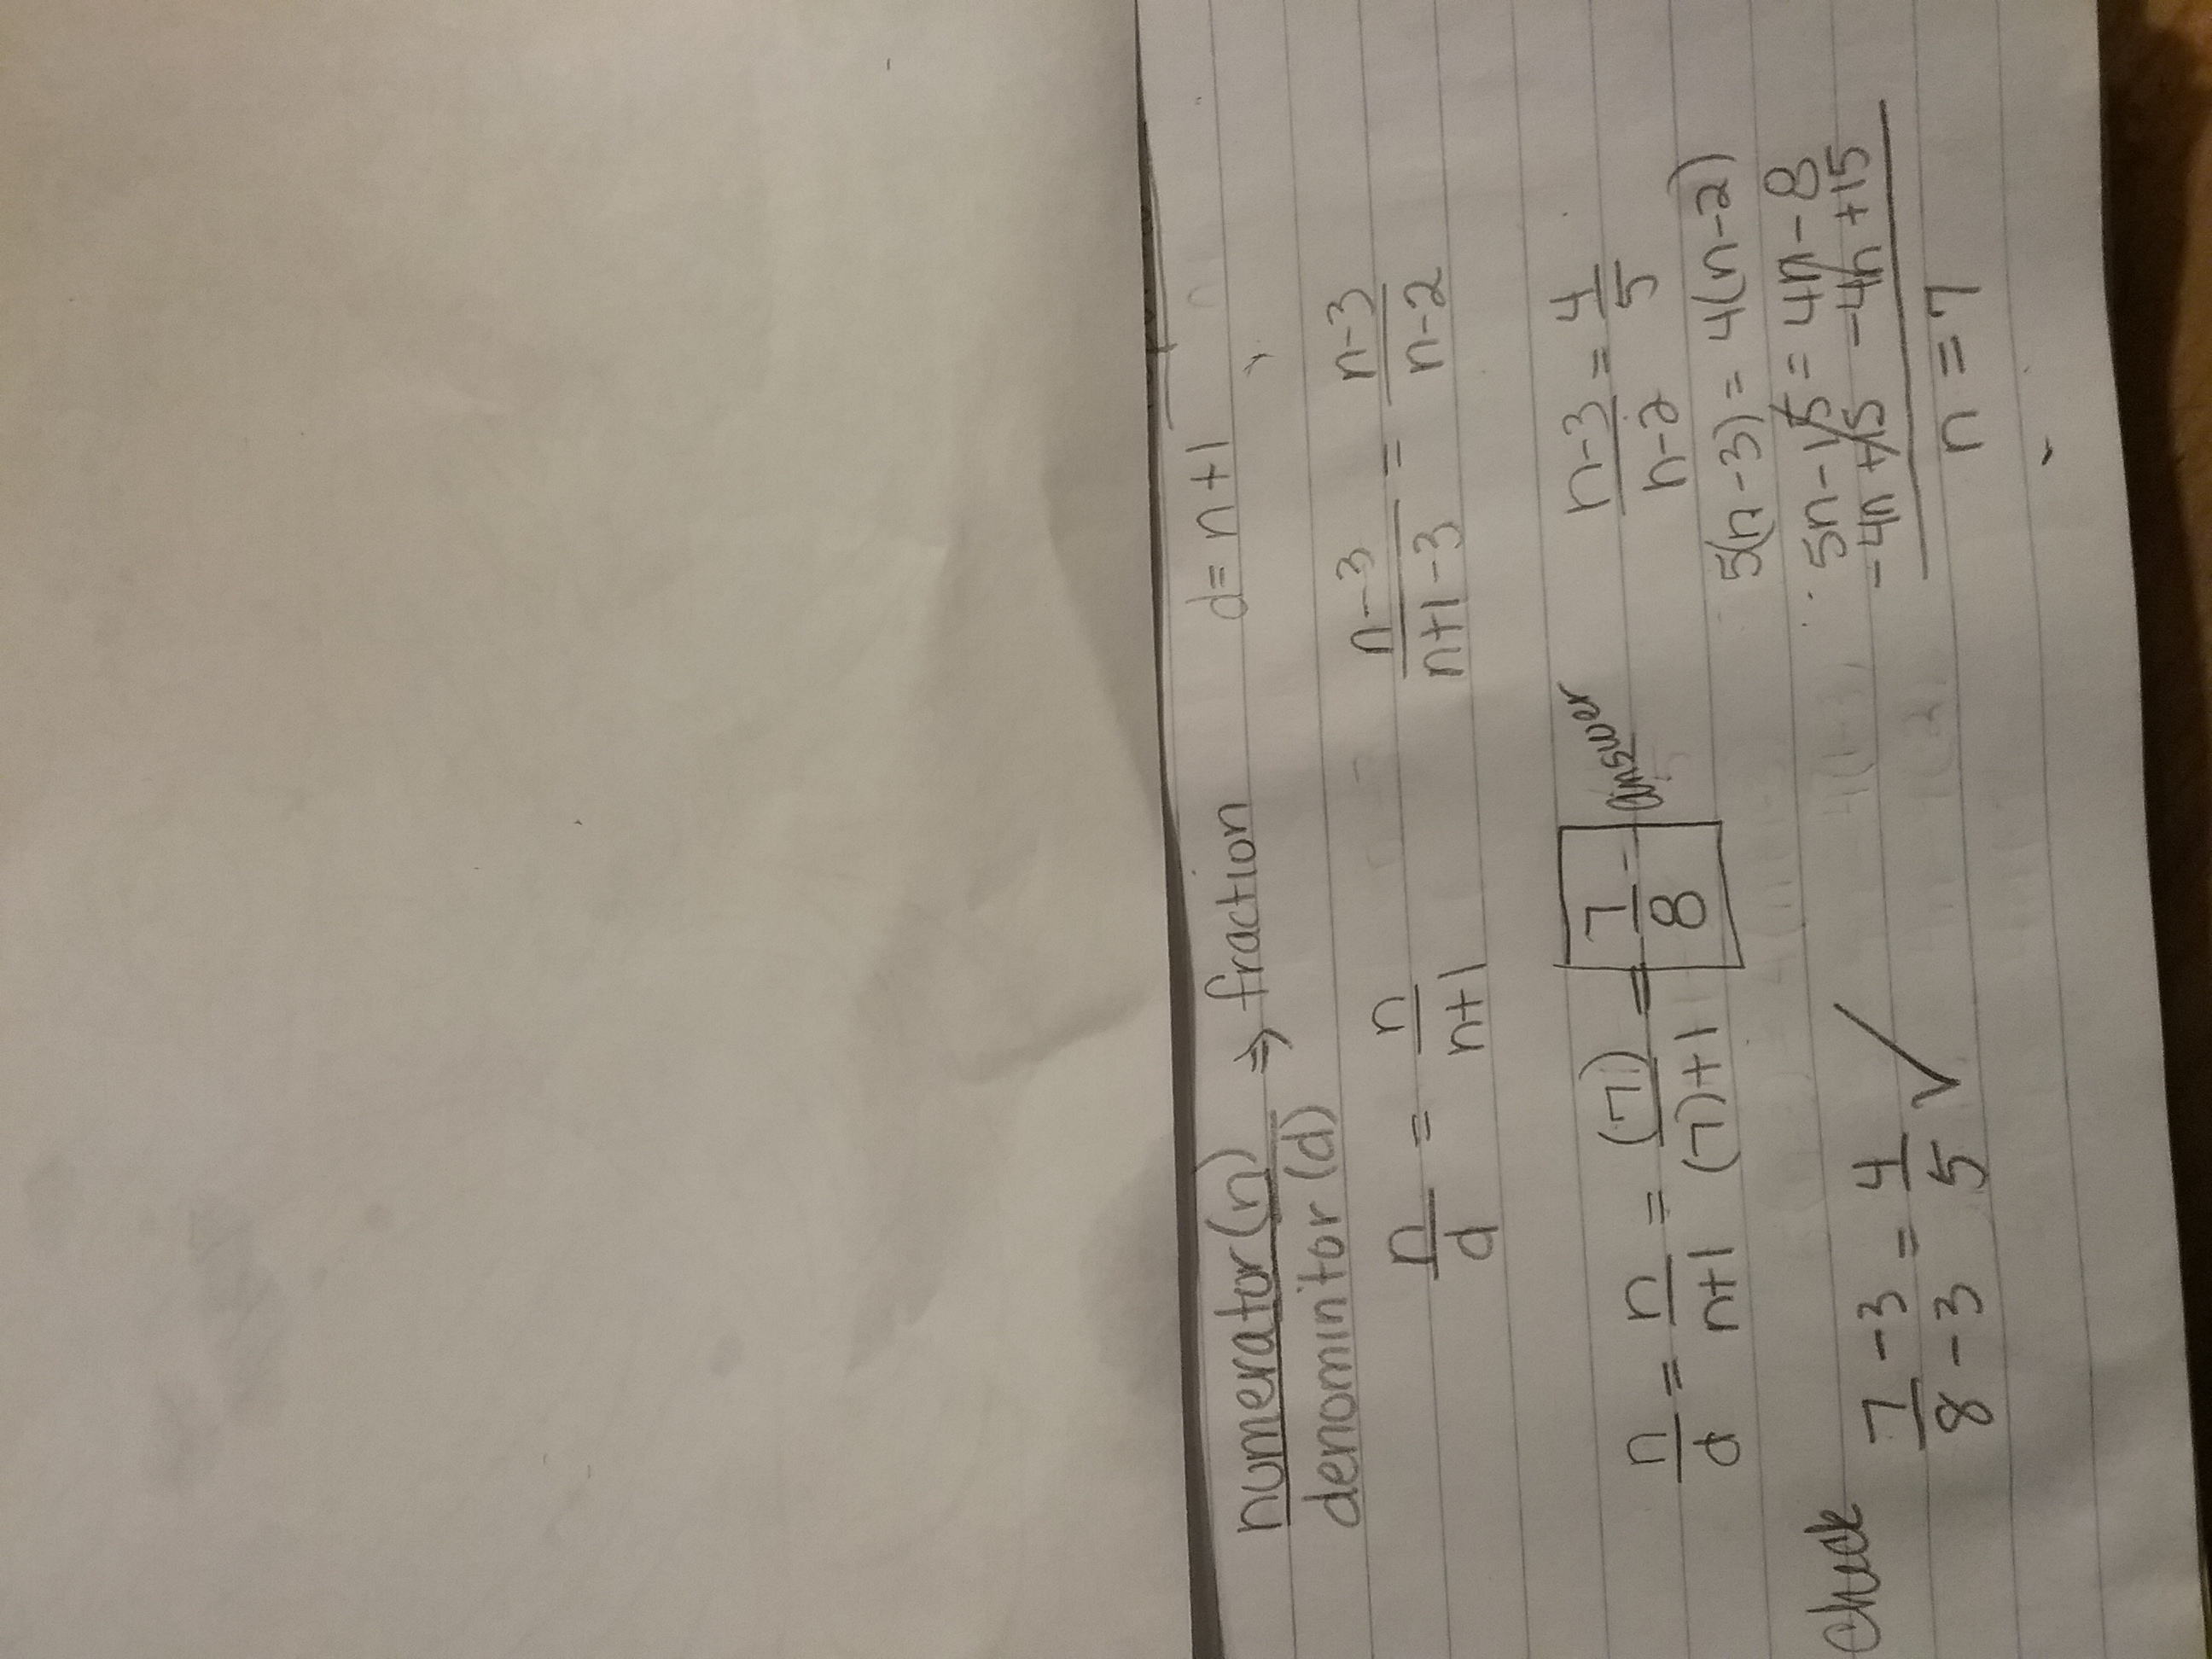 numerator(n) ⇒ fraction d = n+1
denominitor (d)
n/d = n/n+1 n-3/n+1-3 = n-3/n-2
n/d = n/n+1 = (7)/(7)+1 = 7/8 answer
n-3/n-2 = 4/5
5(n-3) = 4(n-2)
5n-15 = 4n-8
-4n +15 -4n +15
n = 7
Check 7-3/8-3 = 4/5 ✓